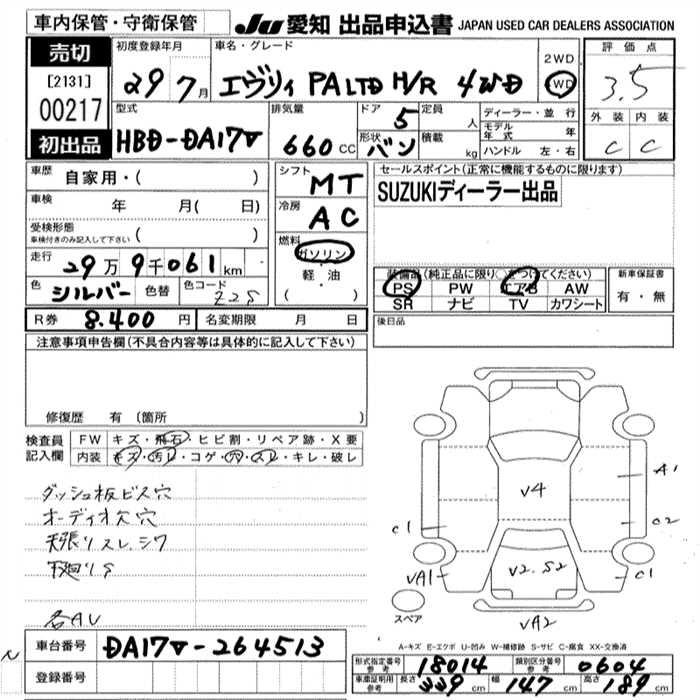 車内保管・守衛保管
JU 愛知 出品申込書 JAPAN USED CAR DEALERS ASSOCIATION
売切
[2131]
00217
初出品
初度登録年月
29 7月
車名・グレード
エヴリィ PA LTD H/R 4WD
2WD
4WD
評価点
3.5
外装 内装
C C
型式
HBD-DA17V
排気量
660 CC
ドア 5
形状 バン
定員 人
積載 kg
ディーラー・並行
モデル年式 年
ハンドル 左・右
車歴 自家用・( )
車検 年 月( 日)
受検形態
車検付きのみ記入して下さい ( )
走行 29万9千061km
色 シルバー 色替 色コード Z2S
シフト MT
冷房 AC
燃料
ガソリン
・
軽・油
( )
セールスポイント(正常に機能するものに限ります)
SUZUKIディーラー出品
装備品(純正品に限り○をつけてください)
PS PW エアB AW
SR ナビ TV カワシート
新車保証書
有・無
R券 8.400 円 名変期限 月 日
後日品
注意事項申告欄(不具合内容等は具体的に記入して下さい)
修復歴 有 (箇所 )
検査員記入欄
FW キズ・飛石・ヒビ割・リペア跡・X要
内装 キズ・汚レ・コゲ・穴・スレ・キレ・破レ
ダッシュ板ビス穴
オーディオ欠穴
天張リスレ.シワ
下廻りS
各AU
A1
V4
C1
C2
V2.S2
VA1
C1
スペア
VA2
A-キズ E-エクボ U-凹み W-補修跡 S-サビ C-腐食 XX-交換済
車台番号 DA17V-264513
登録番号
形式指定番号 参考 18014 類別区分番号 参考 0604
車庫証明用 参考 長さ 339 cm 幅 147 cm 高さ 189 cm